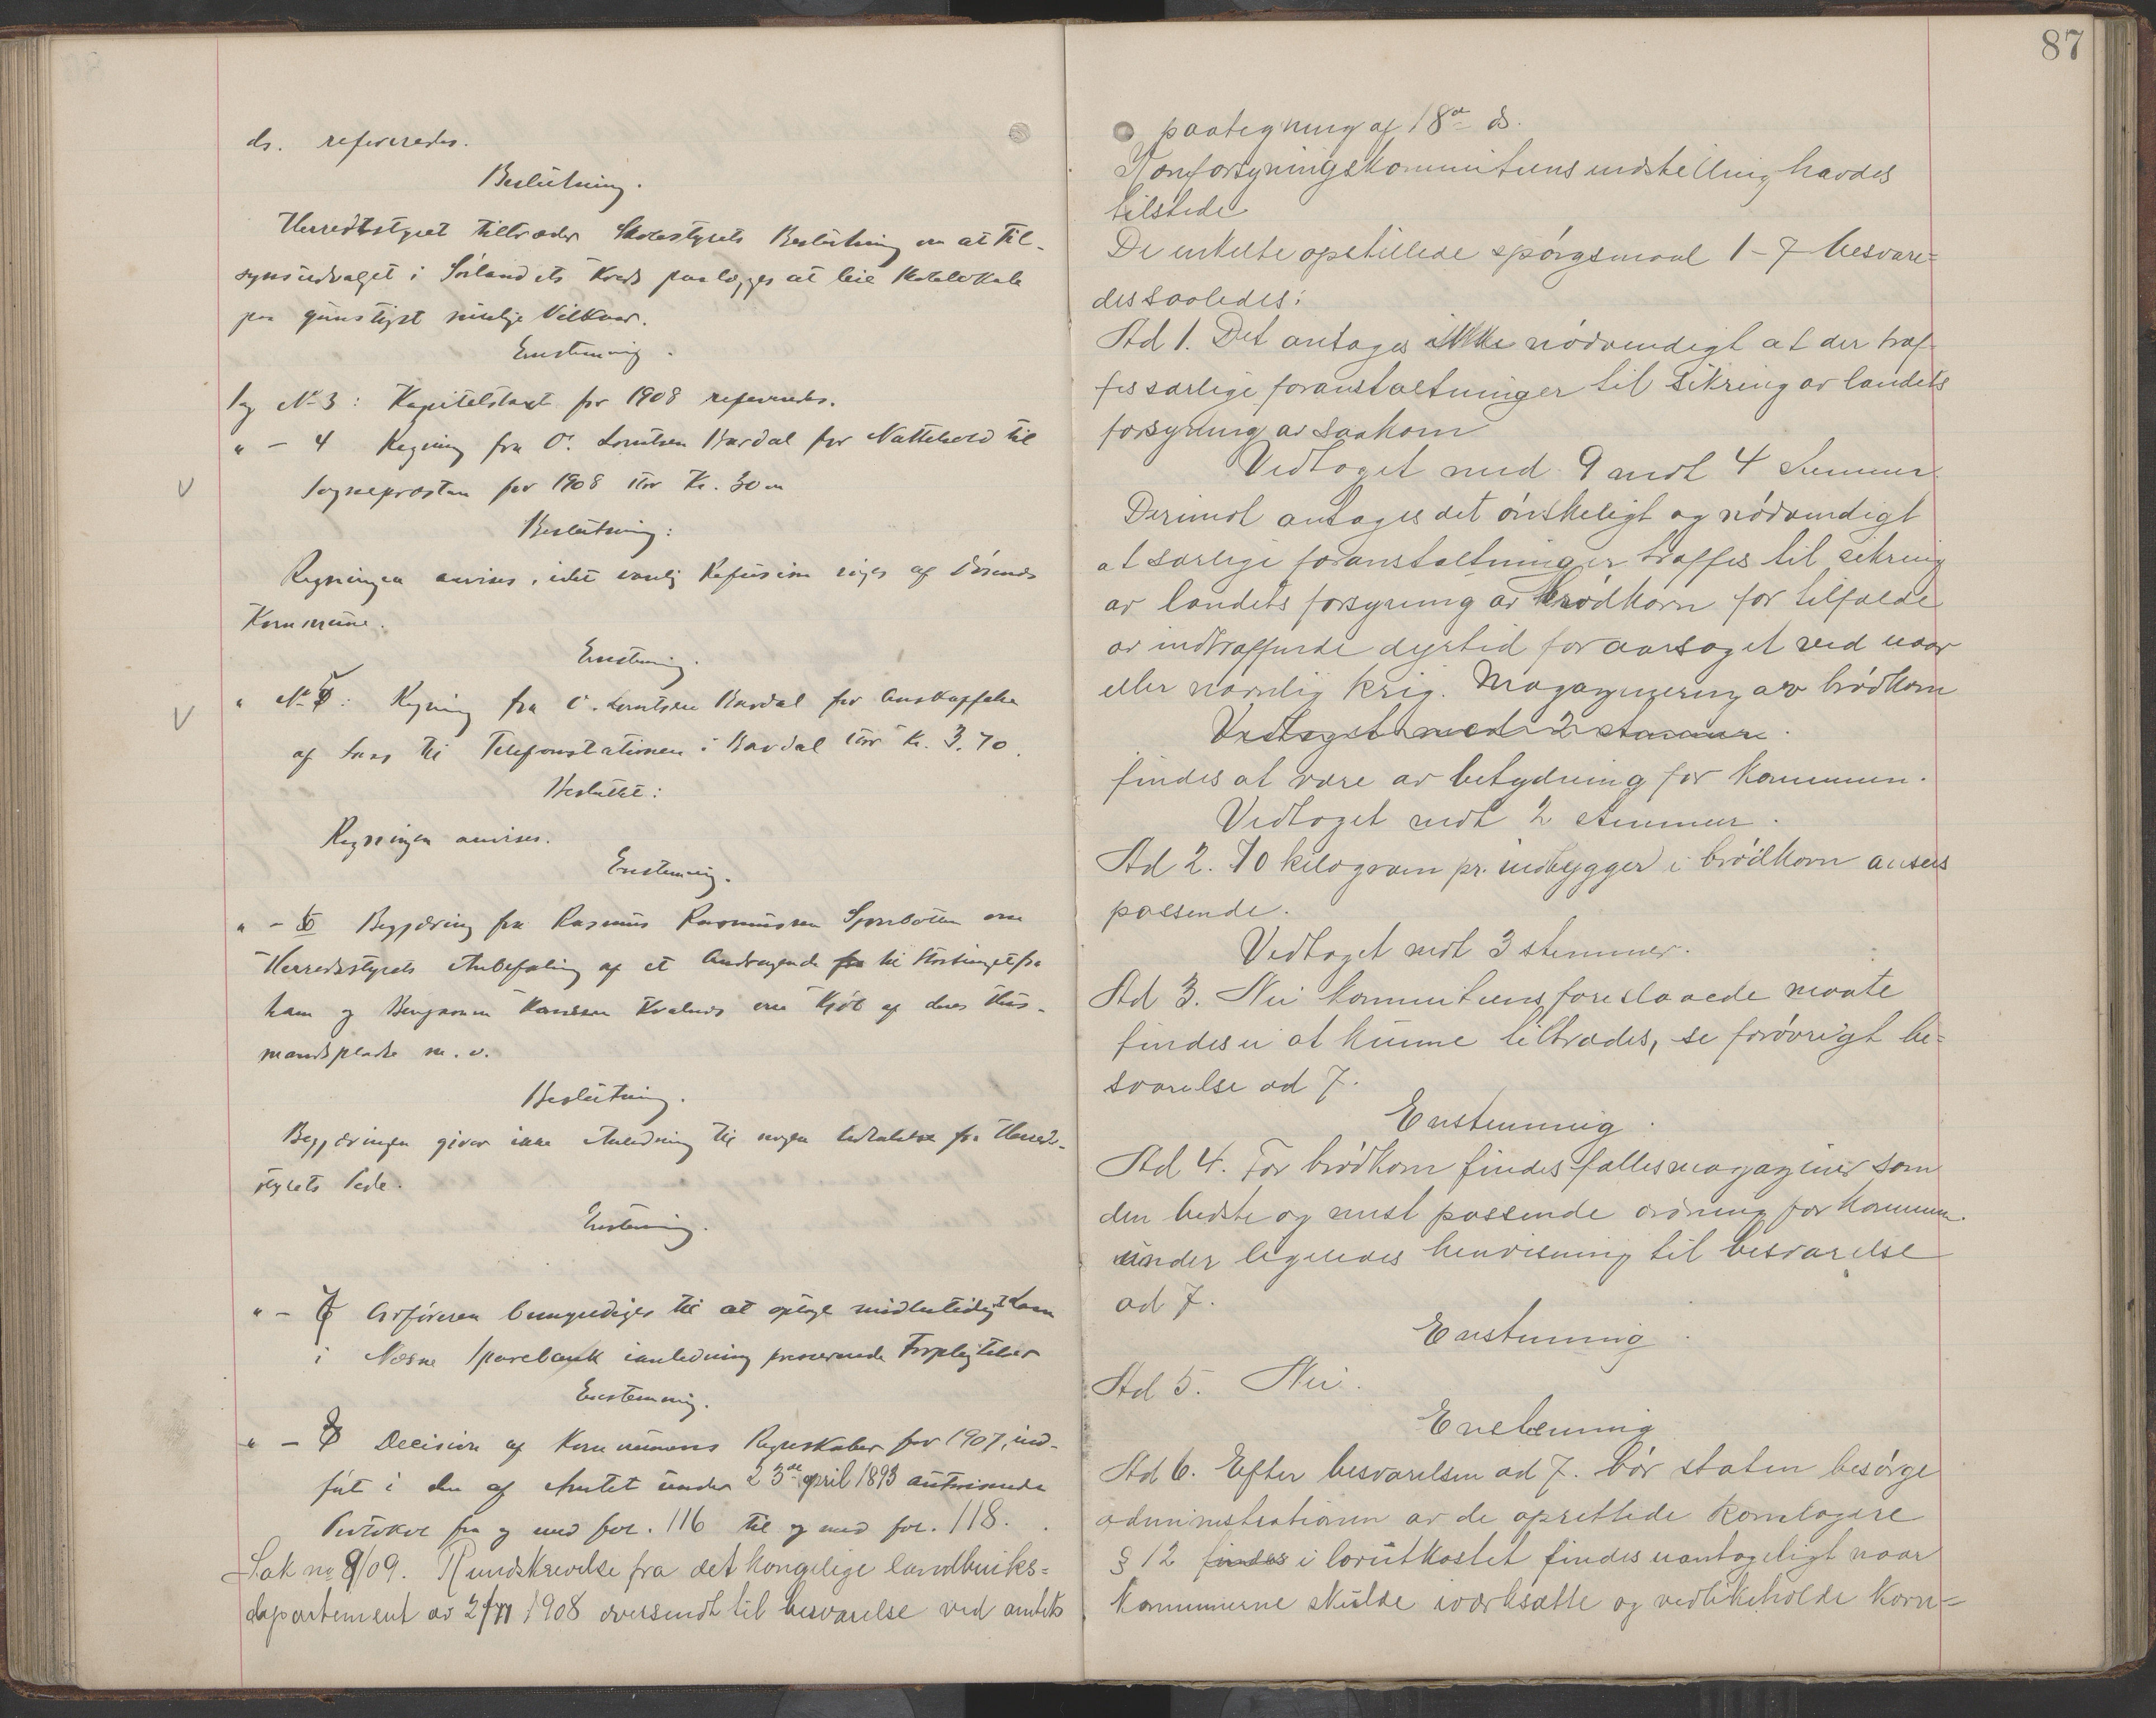 ds. refereredes.
Beslutning.
Herredsstyret tiltræder Skolestyrets Beslutning om at Til-
synsudvalget i Sørlandets Kreds paalægges at leie Skolelokale
paa gunstigst mulige Vilkaar.
Enstemmig.
Sag No 3: Kapitelstaxt for 1908 refereredes.
" - 4 Regning fra O. Lorntsen Bardal for Nattehold til
Sogneprästen for 1908 stor Kr. 30
Beslutning:
Regningen anvises, idet vanlig Refusion søges af
Kommune.
Enstemmig.
" No 5: Regning fra O. Lorntsen Bardal for Anskaffelse
af til Telefonstationen i Bardal stor Kr. 3,70.
Beslutet:
Regningen anvises.
Enstemmig.
" - 6 Begjæring fra Rasmus Rasmussen Sjonbotten om
Herredsstyrets Anbefaling af et Andragende fra til Stortinget fra
ham og Hansen om Kjøb af deres Hus-
mandspladse m. v.
Beslutning.
Begjæringen giver ikke Anledning til nogen Udtalelse fra Herreds-
styrets Side.
Enstemmig.
" - 7 Ordføreren bemyndiges til at optage midlertidigt Laan
i Næsne Sparebank i anledning presserende Forpligtelser
Enstemmig.
" - 8 Decision af Kommunens Regnskaber for 1907, ind-
ført i den af Amtet under 23de april 1893 autoriserede
Protokol fra og med fol. 116 til og med fol. 118.
Sak no 9/09. Rundskrivelse fra det kongelige landbruks=
departement av 2/ 1908 oversendt til besvarelse ved amtets
87
paategning af 18de ds.
Kornforsyningskommiteens indstilling havdes
tilstede
De enkelte opstillede spørgsmaal 1-7 besvare=
des saaledes:
Ad 1. Det antages ikke nødvendigt at der træf-
fes særlige foranstaltninger til sikring av landets
forsyning av saakorn
Vedtaget med 9 mot 4 stemmer.
Derimot antages det ønskeligt og nødvendigt
at særlige foranstaltninger træffes til sikring
av landets forsyning av brødkorn for tilfælde
av indtræffende dyrtid foraarsaget ved uaar
eller navnlig krig. Magazinering av brødkorn
Vedtaget med 2 stemmer.
findes at være av betydning for kommunen.
Vedtaget mot 2 stemmer.
Ad 2. 70 kilogram pr. indbygger i brødkorn ansees
passende.
Vedtaget mot 3 stemmer.
Ad 3. Nei kommiteens foreslaaede maate
findes ei at kunne tiltrædes, se forøvrigt be=
svarelse ad 7.
Enstemmig.
Ad 4. For brødkorn findes fællesmagaziner som
den bedste og mest passende ordning for kommunen.
under ligeledes henvisning til besvarelse
ad 7.
Enstemmig.
Ad 5. Nei.
Enstemmig
Ad 6. Efter besvarelsen ad 7. bør staten besørge
administrationen av de oprettede kornlagere
§ 12 findes i lovutkastet findes uantageligt naar
kommunerne skulde iværksætte og vedlikeholde korn=